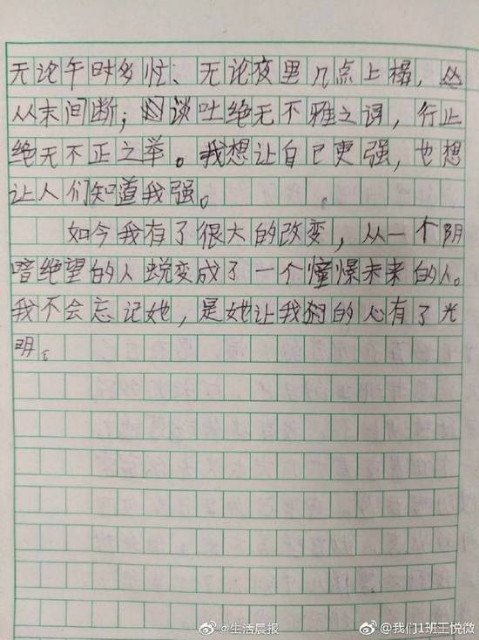 无论午时多忙、无论夜里几点上榻，
从末间断；谈吐绝无不雅之词，行止
绝无不正之举。我想让自己更强，也想
让人们知道我强。
如今我有了很大的改变，从一个阴
暗绝望的人蜕变成了一个憧憬未来的人。
我不会忘记她，是她让我的心有了光
明。
@生活晨报
@我们1班王悦微